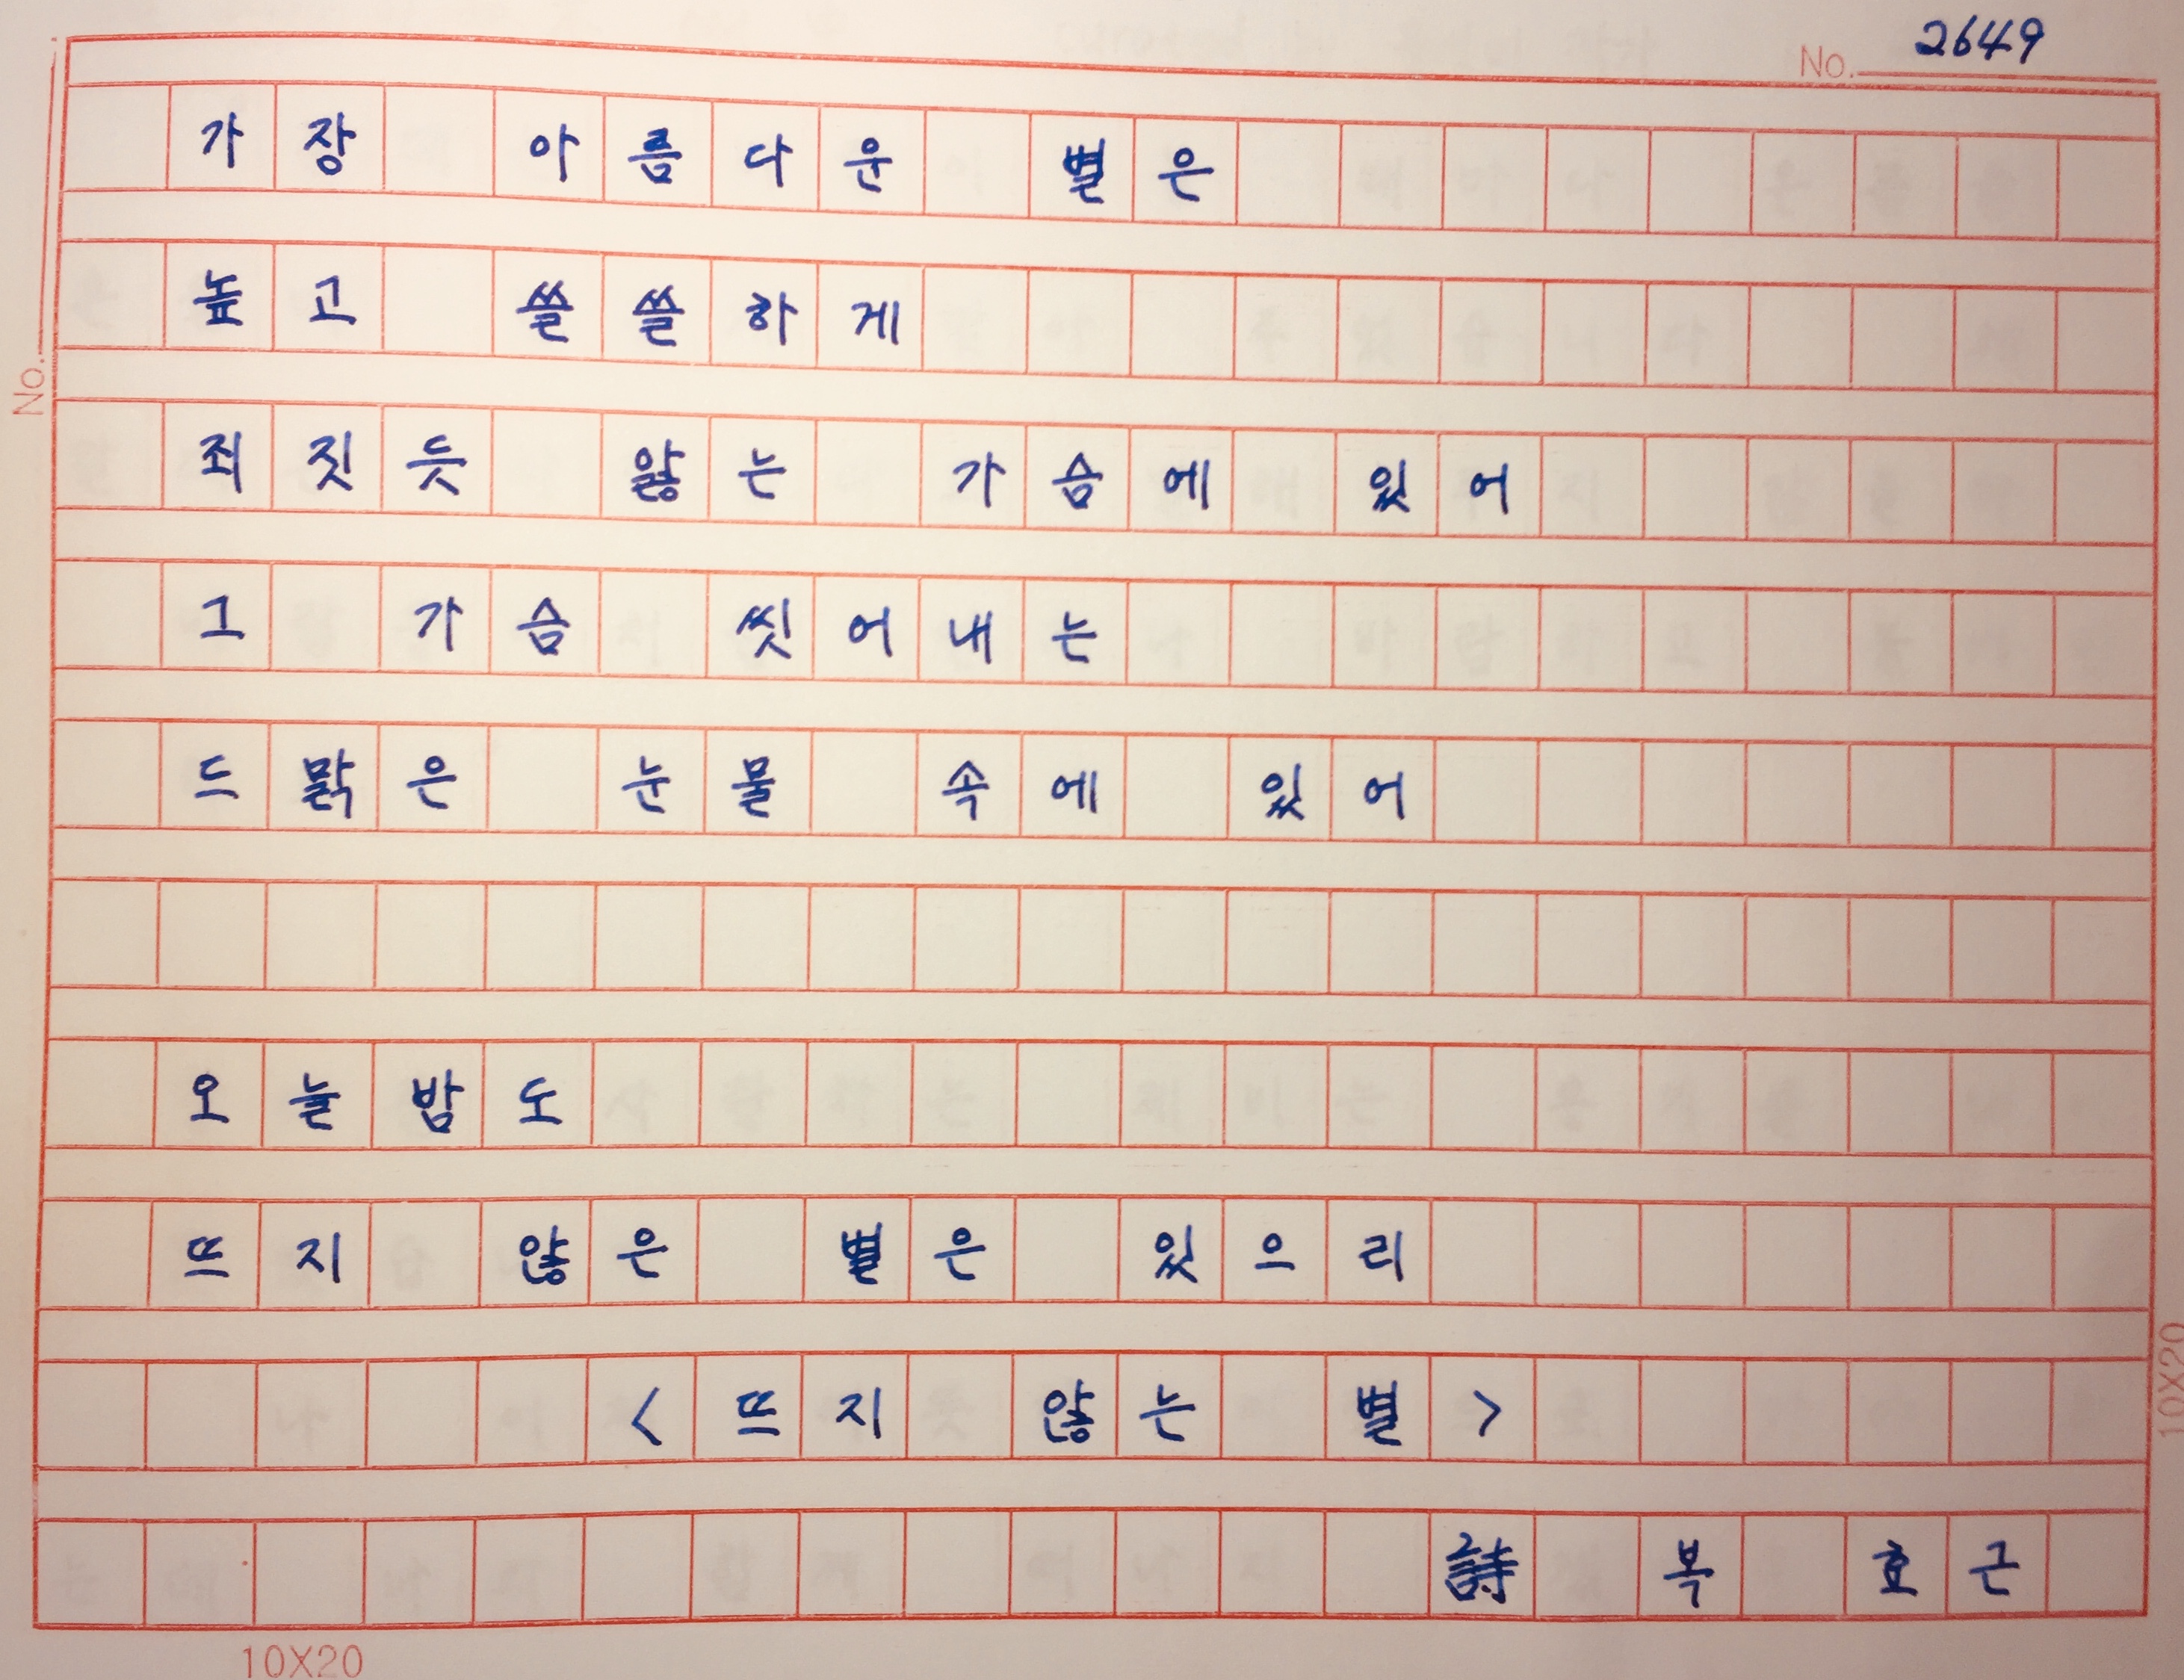 No. 2649
가장 아름다운 별은
높고 쓸쓸하게
죄짓듯 앓는 가슴에 있어
그 가슴 씻어내는
드맑은 눈물 속에 있어
오늘밤도
뜨지 않은 별은 있으리
<뜨지 않는 별>
詩 복 효근
10X20
No.
10X20